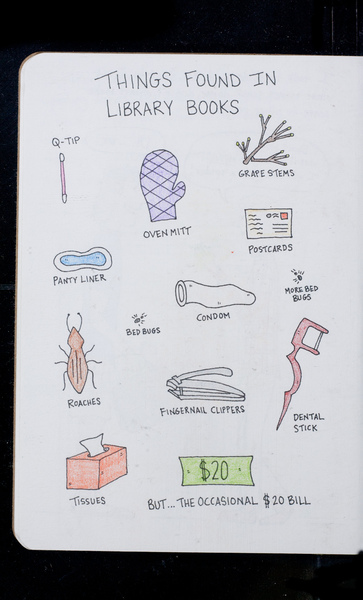 THINGS FOUND IN
LIBRARY BOOKS
Q-TIP
GRAPE STEMS
OVEN MITT
POSTCARDS
PANTY LINER
MORE BED
BUGS
CONDOM
BED BUGS
ROACHES
FINGERNAIL CLIPPERS
DENTAL
STICK
$20
TISSUES
BUT... THE OCCASIONAL $20 BILL